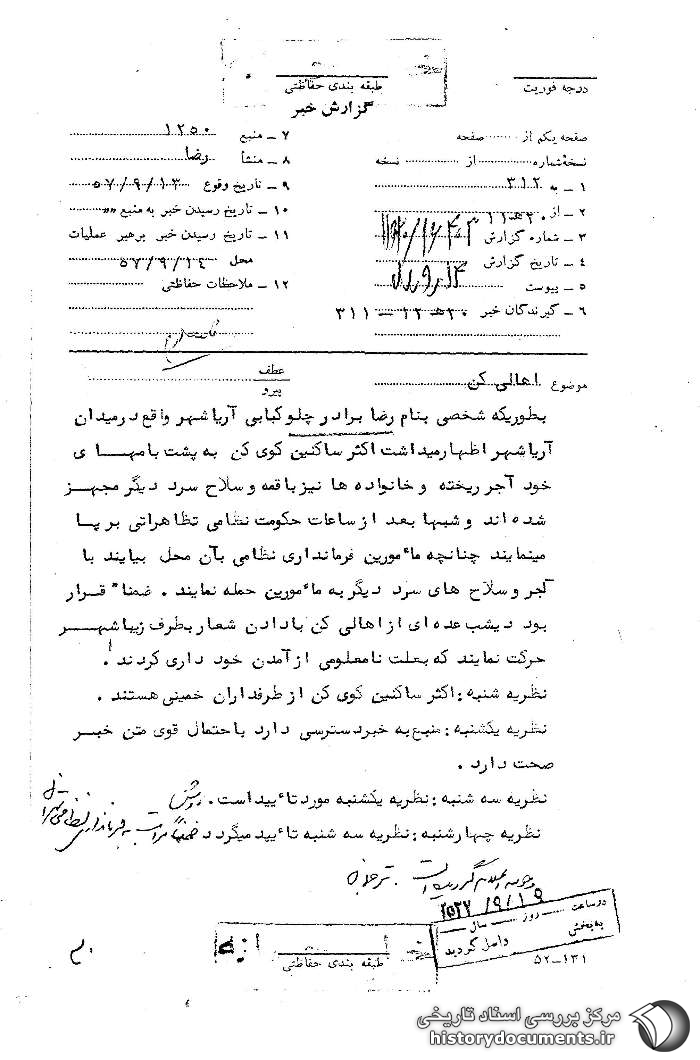 درجه فوریت
طبقه بندی حفاظتی
گزارش خبر
صفحه یکم از صفحه
نسخه شماره از نسخه
۱ ـ به ۳۱۲
۲ ـ از ۲۰ هـ ۱۱
۳ ـ شماره گزارش
۴ ـ تاریخ گزارش
۵ ـ پیوست
۶ ـ گیرندگان خبر ۲۰ هـ ۱۲ ـ ۳۱۱
۷ ـ منبع ۱۲۵۰
۸ ـ منشأ رضا
۹ ـ تاریخ وقوع ۵۷/۹/۱۳
۱۰ ـ تاریخ رسیدن خبر به منبع "
۱۱ ـ تاریخ رسیدن خبر برهبر عملیات
محل ۵۷/۹/۱۴
۱۲ ـ ملاحظات حفاظتی
موضوع اهالی کن
عطف
پیرو
بطوریکه شخصی بنام رضا برادر چلوکبابی آریاشهر واقع در میدان
آریاشهر اظهار میداشت اکثر ساکنین کوی کن به پشت بامهای
خود آجر ریخته و خانواده ها نیز با قمه و سلاح سرد دیگر مجهز
شده اند و شبها بعد از ساعات حکومت نظامی تظاهراتی برپا
مینمایند چنانچه مأمورین فرمانداری نظامی بآن محل بیایند با
آجر و سلاح های سرد دیگر به مأمورین حمله نمایند . ضمناً قرار
بود دیشب عده ای از اهالی کن با دادن شعار بطرف زیباشهر
حرکت نمایند که بعلت نامعلومی از آمدن خود داری کردند .
نظریه شنبه : اکثر ساکنین کوی کن از طرفداران خمینی هستند .
نظریه یکشنبه : منبع به خبر دسترسی دارد با احتمال قوی متن خبر
صحت دارد .
نظریه سه شنبه : نظریه یکشنبه مورد تأیید است .
نظریه چهارشنبه : نظریه سه شنبه تأیید میگردد ضمناً مراتب به فرمانداری نظامی تهران
۲۵۳۷/۹/۱۹
در ساعت روز سال
به بخش واصل گردید
طبقه بندی حفاظتی
۵۲ـ۱۳۱
مرکز بررسی اسناد تاریخی
historydocuments.ir